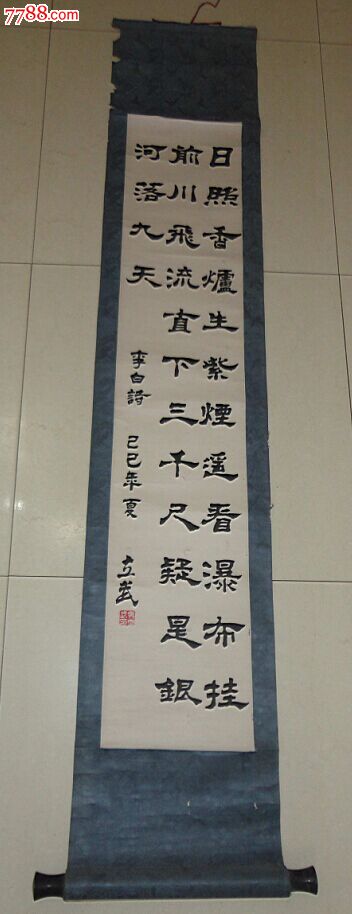 7788.com
日照香爐生紫煙遥看瀑布挂
前川飛流直下三千尺疑是銀
河落九天
李白詩 己巳年夏 立武